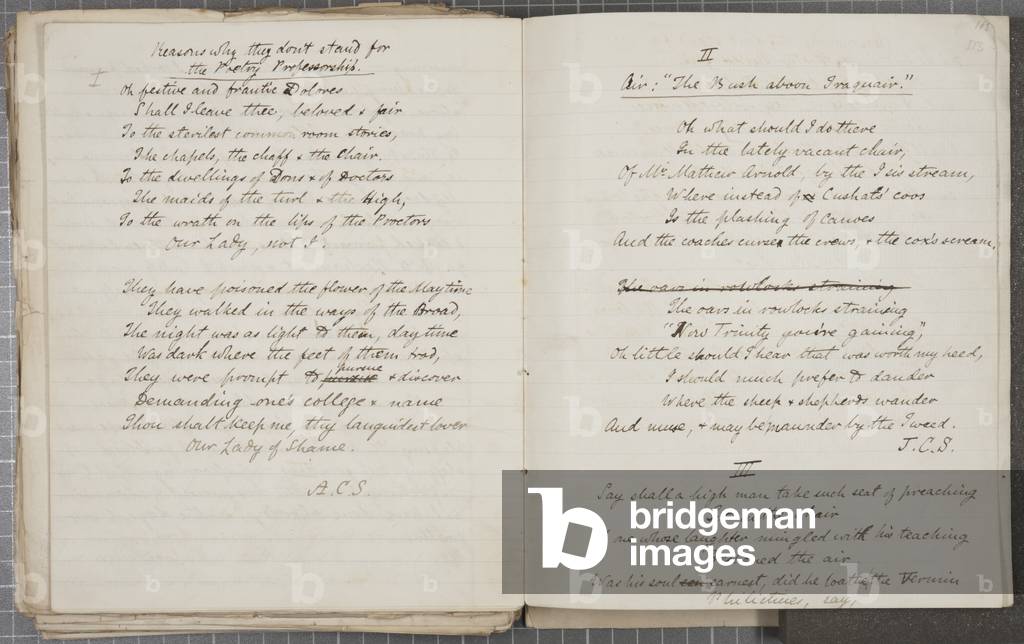 Reasons why they don't stand for
the Poetry Professorship.
I
Oh festive and frantic Dolores
Shall I leave thee, beloved & fair
To the sterilest common room stories,
The chapels, the chaff & the Chair.
To the dwellings of Dons & of Doctors
The maids of the turl & the High,
To the wrath on the lips of the Proctors
Our Lady, not I.
They have poisoned the flower of the Maytime
They walked in the ways of the Broad,
The night was as light to them, daytime
Was dark where the feet of them trod,
They were prompt to pursue & discover
Demanding one's college & name
Thou shalt keep me, thy languidest lover
Our Lady of Shame.
A.C.S.
113
II
Air: "The Bush aboon Traquair."
Oh what should I do there
In the lately vacant chair,
Of Mr. Mathew Arnold, by the Isis stream,
Where instead of Cushats' coos
Is the plashing of Canoes
And the coaches curse the crews, & the cox's scream,
The oars in rowlocks straining
The oars in rowlocks straining
"Now Trinity you're gaining,"
Oh little should I hear that was worth my heed,
I should much prefer to dander
Where the sheep & shepherds wander
And muse, & maybe maunder by the Tweed.
J.C.S.
III
Say shall a high man take such seat of preaching
chair
one whose laughter mingled with his teaching
the air
Was his soul earnest, did he loathe the Vermin
Philistines, say,
bridgeman
images